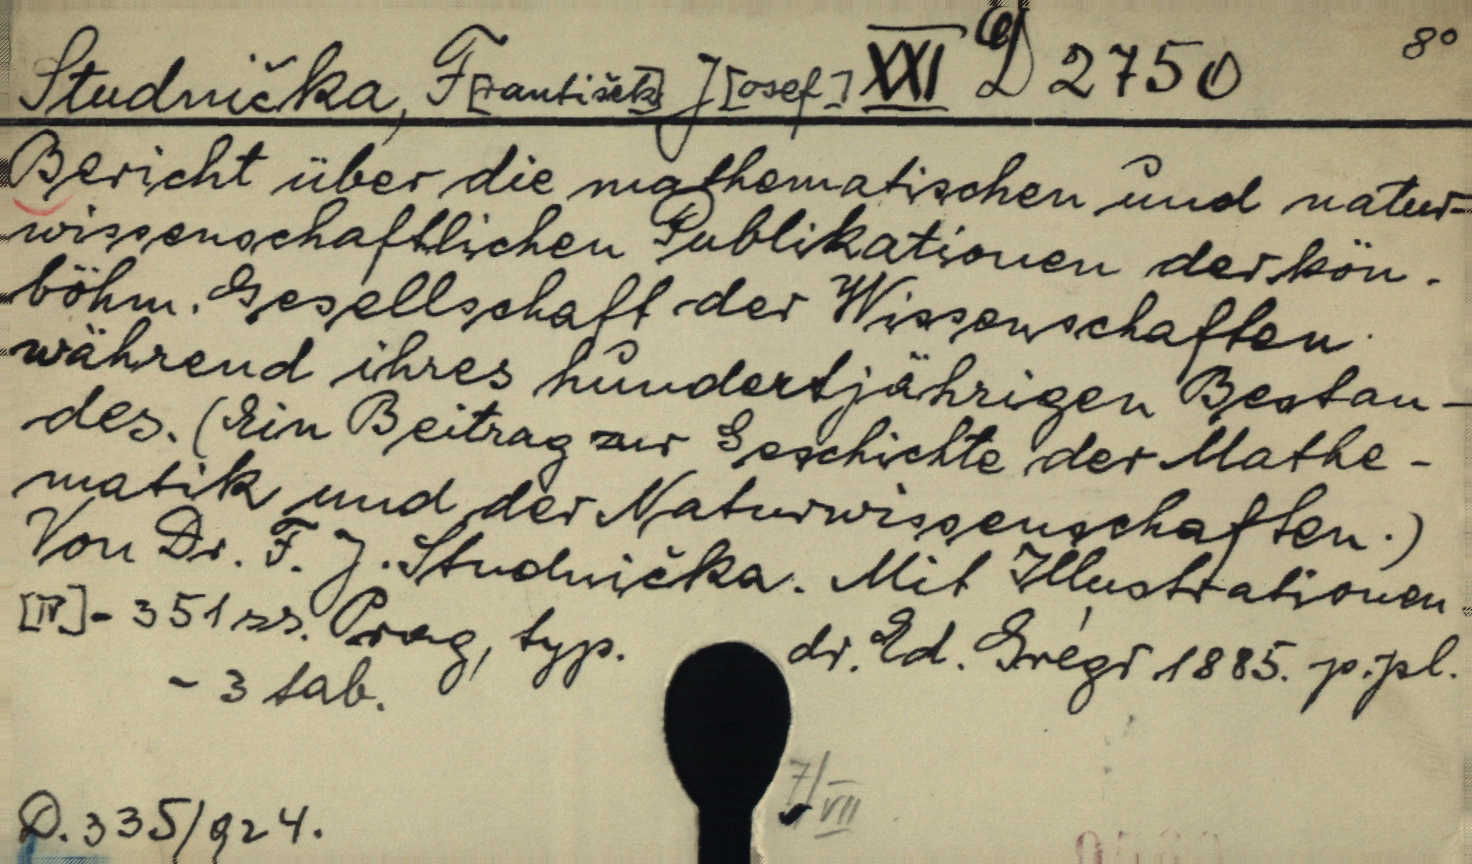 Studnička, F[rantišek] J[osef] XXI D 2750 8°
Bericht über die mathematischen und natur-
wissenschaftlichen Publikationen der kön.
böhm. Gesellschaft der Wissenschaften
während ihres hundertjährigen Bestan-
des. (Ein Beitrag zur Geschichte der Mathe-
matik und der Naturwissenschaften.)
Von Dr. F. J. Studnička. Mit Illustrationen.
[IV]-351 ss. Prag, typ. dr. Ed. Grégr 1885. p. pl.
- 3 tab.
7/VII
D. 335/924.